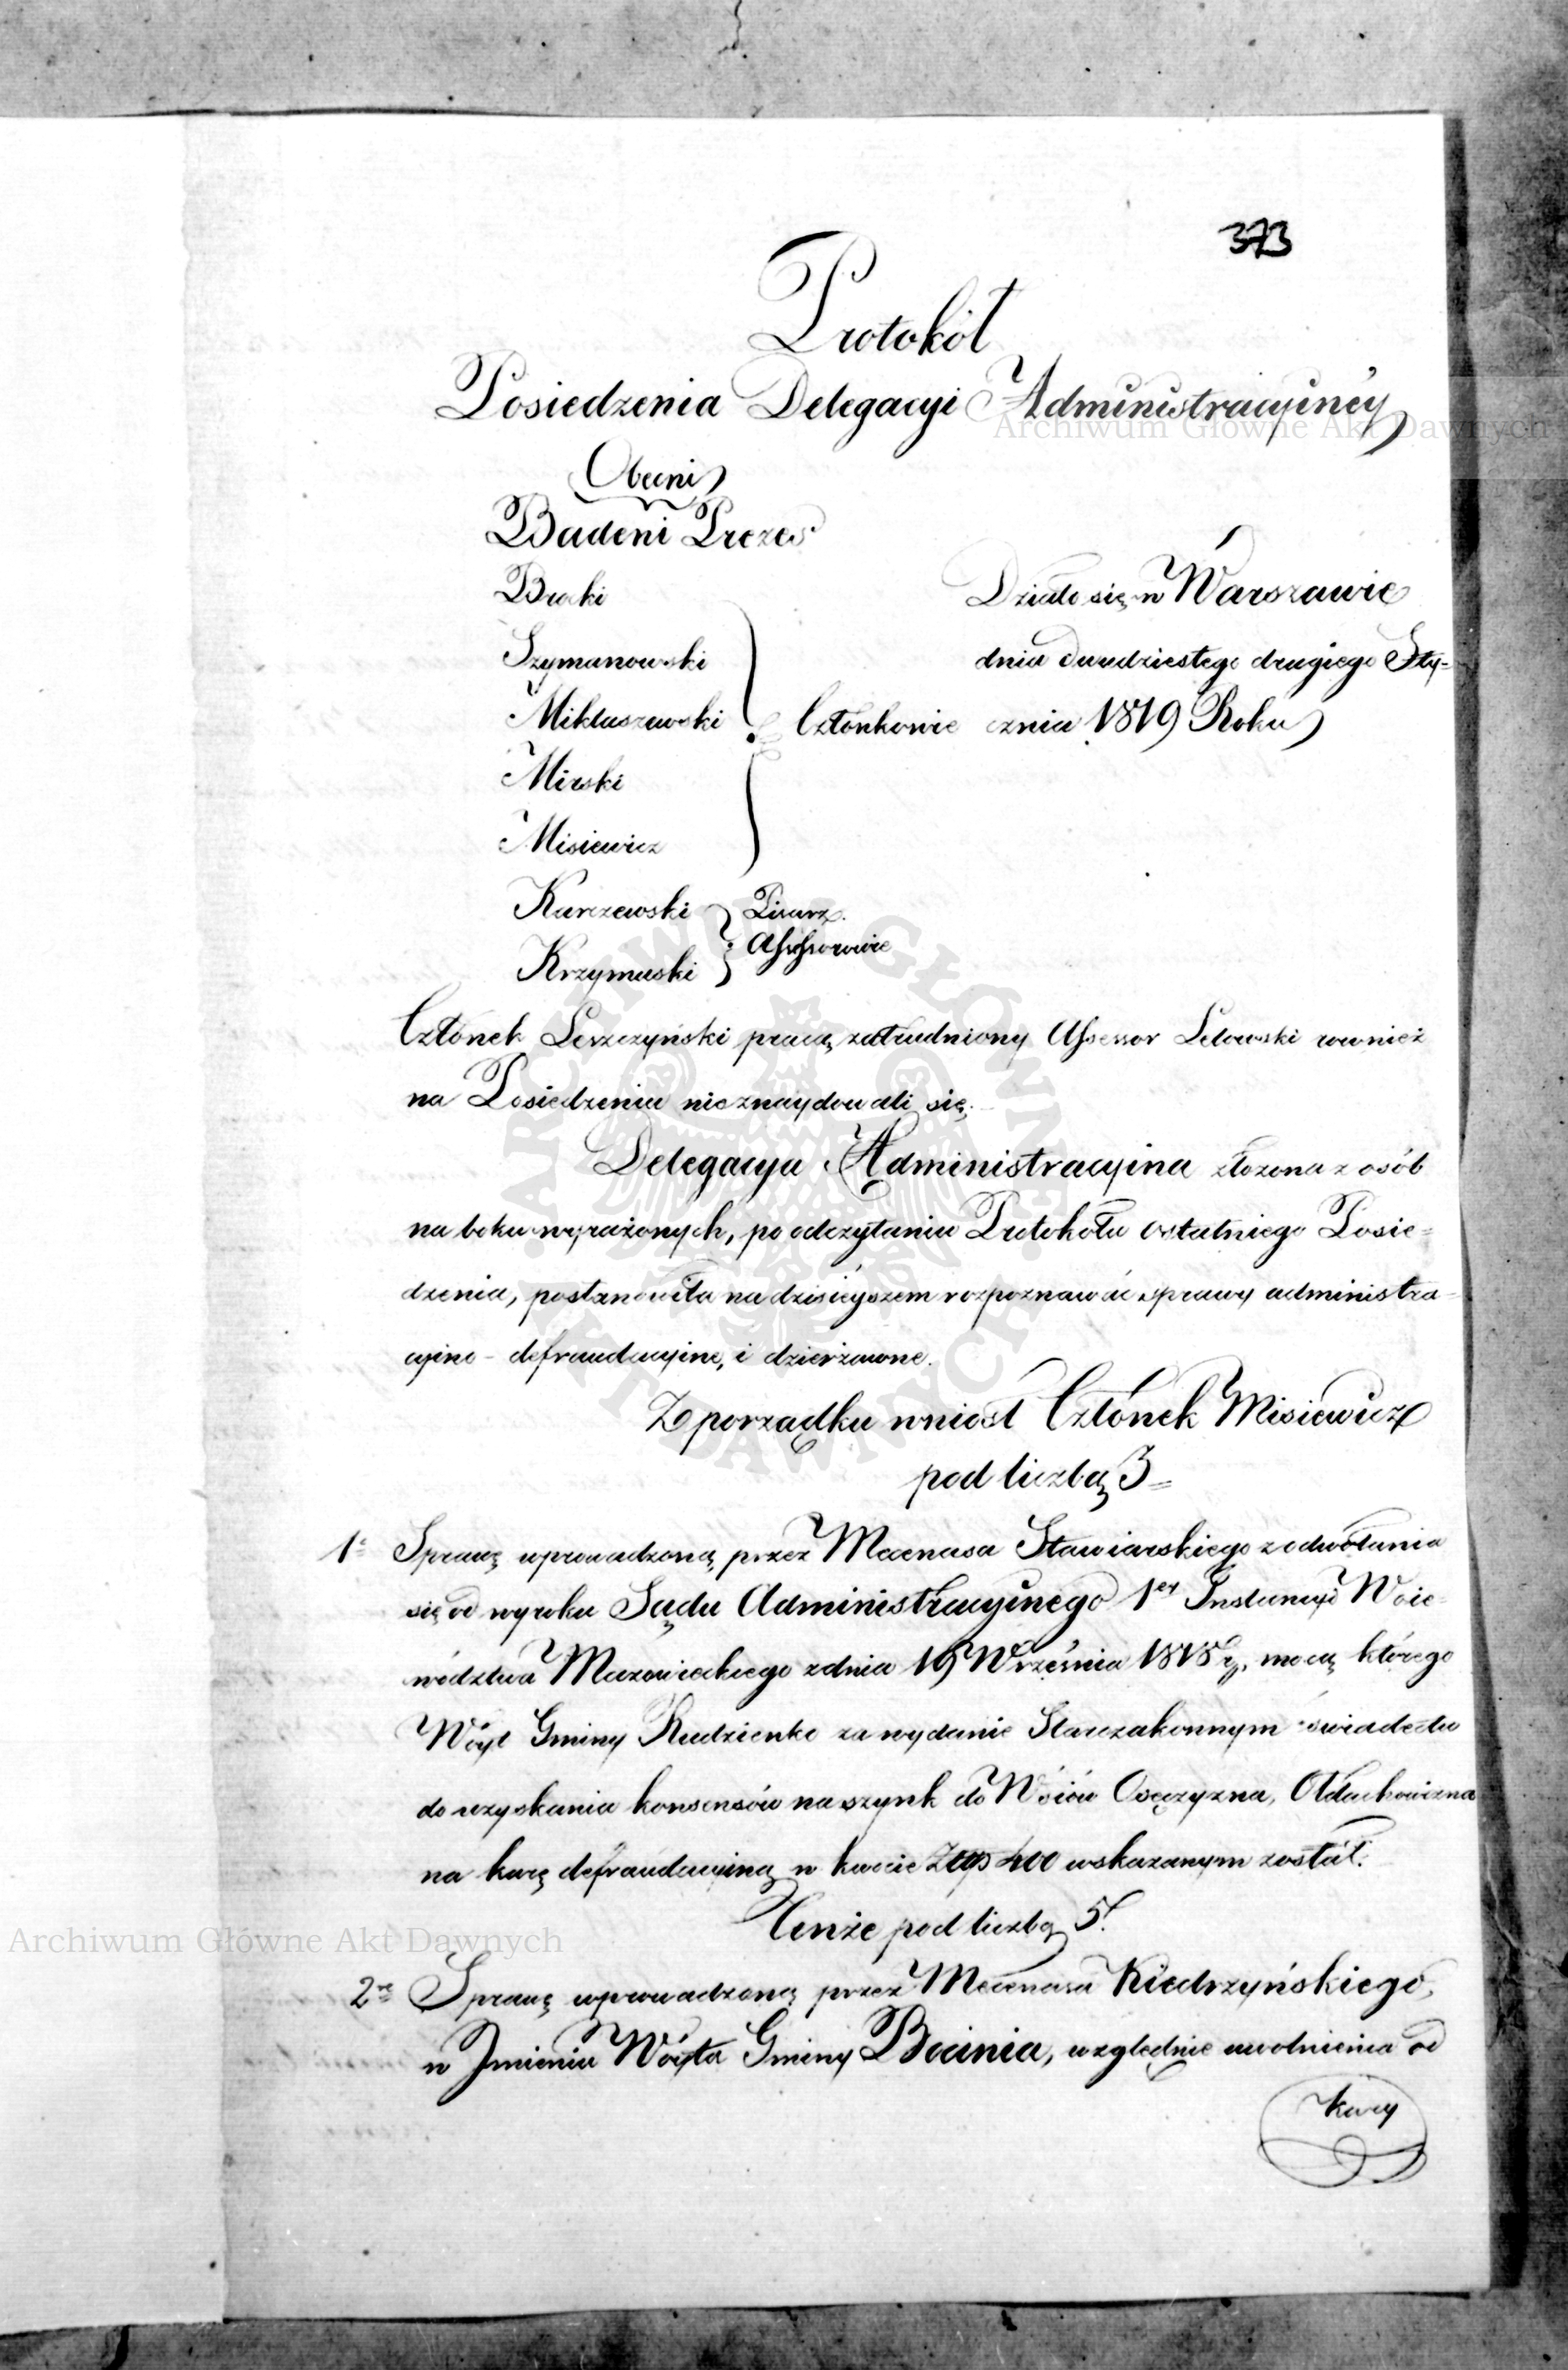 373
Protokół
Posiedzenia Delegacyi Administracyiney
Obecni
Badeni Prezes
Brocki
Szymanowski
Mikłaszewski
Mirski
Misiewicz
Członkowie
Karczewski
Krzymuski
Pisarz.
Assessorowie
Działo się w Warszawie
dnia dwudziestego drugiego Sty-
cznia 1819 Roku
Członek Leszczyński pracą zatrudniony Assessor Letowski rownież
na Posiedzeniu nieznaydowali się.
Delegacya Administracyina złożona z osób
na boku wyrażonych, po odczytaniu Protokołu ostatniego Posie=
dzenia, postanowiła na dzisieyszem rozpoznawać sprawy administra=
cyino - defraudacyine, i dzierżawne.
Z porządku wniósł Członek Misiewicz
pod liczbą 3=
1º Sprawę wprowadzoną przez Mecenasa Stawiarskiego z odwołania
się od wyroku Sądu Administracyinego 1ey Instancyi Woie=
wództwa Mazowieckiego z dnia 19 Września 1818 r., mocą którego
Wóyt Gminy Rudzienko za wydanie Starozakonnym świadectw
do uzyskania konsensów na szynk do Wsiów Osęczyzna, Ołdachowizna
na karę defraudacyiną w kwocie Złp 400 wskazanym został.
Tenże pod liczbą 5.
2re Sprawę wprowadzoną przez Mecenasa Kiedrzyńskiego,
w Imieniu Wóyta Gminy Bocinia, względnie uwolnienia od
kary
Archiwum Główne Akt Dawnych
Archiwum Główne Akt Dawnych
ARCHIWUM GŁÓWNE AKT DAWNYCH